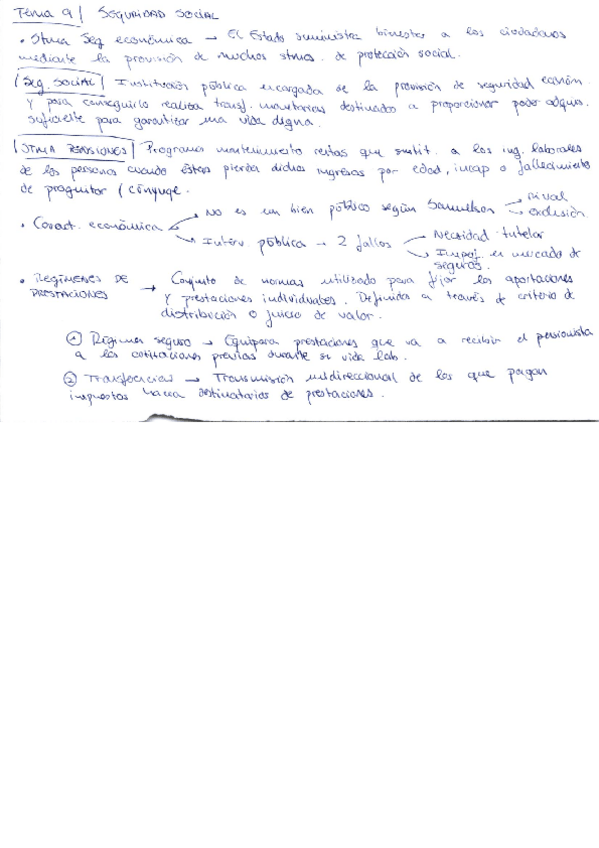 Tema 9 | SEGURIDAD SOCIAL
• Stma Seg económica → El Estado suministra bienestar a los ciudadanos
mediante la provisión de muchos stmas. de protección social.
|Seg. SOCIAL| Institución pública encargada de la provisión de seguridad económ.
y para conseguirlo realiza transf. monetarias destinadas a proporcionar poder adquis.
suficiente para garantizar una vida digna.
|STMA PENSIONES| Programa mantenimiento rentas que sustit. a los ing. laborales
de las personas cuando éstas pierda dichos ingresos por edad, incap o fallecimiento
de progenitor / cónyuge.
• Caract. económica → No es un bien público según Samuelson → rival → exclusión.
→ Interv pública → 2 fallos → Necesidad tutelar
→ Imperf. en mercado de seguros.
• REGÍMENES DE PRESTACIONES → Conjunto de normas utilizado para fijar las aportaciones
y prestaciones individuales. Definidos a través de criterio de
distribución o juicio de valor.
① Régimen seguro → Equipara prestaciones que va a recibir el pensionista
a las cotizaciones previas durante su vida lab.
② Transferencias → Transmisión unidireccional de los que pagan
impuestos hacia destinatarios de prestaciones.